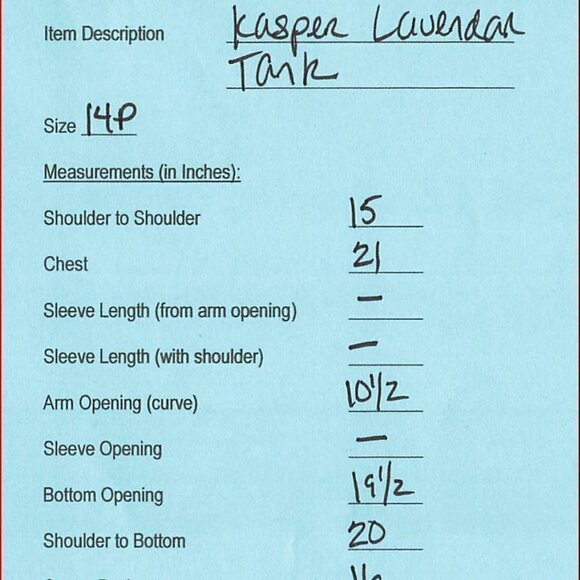 Item Description Kasper Lavendar
Tank
Size 14P
Measurements (in Inches):
Shoulder to Shoulder 15
Chest 21
Sleeve Length (from arm opening) —
Sleeve Length (with shoulder) —
Arm Opening (curve) 10 1/2
Sleeve Opening —
Bottom Opening 19 1/2
Shoulder to Bottom 20